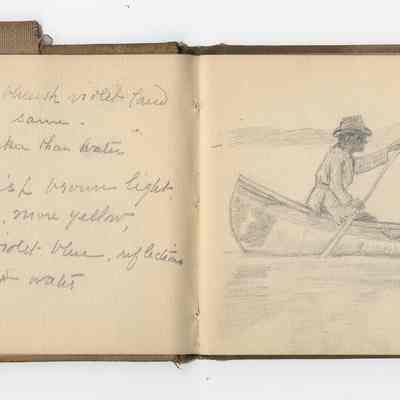 bluish violet land
same.
than water
brown light,
, more yellow,
violet blue, reflections
water